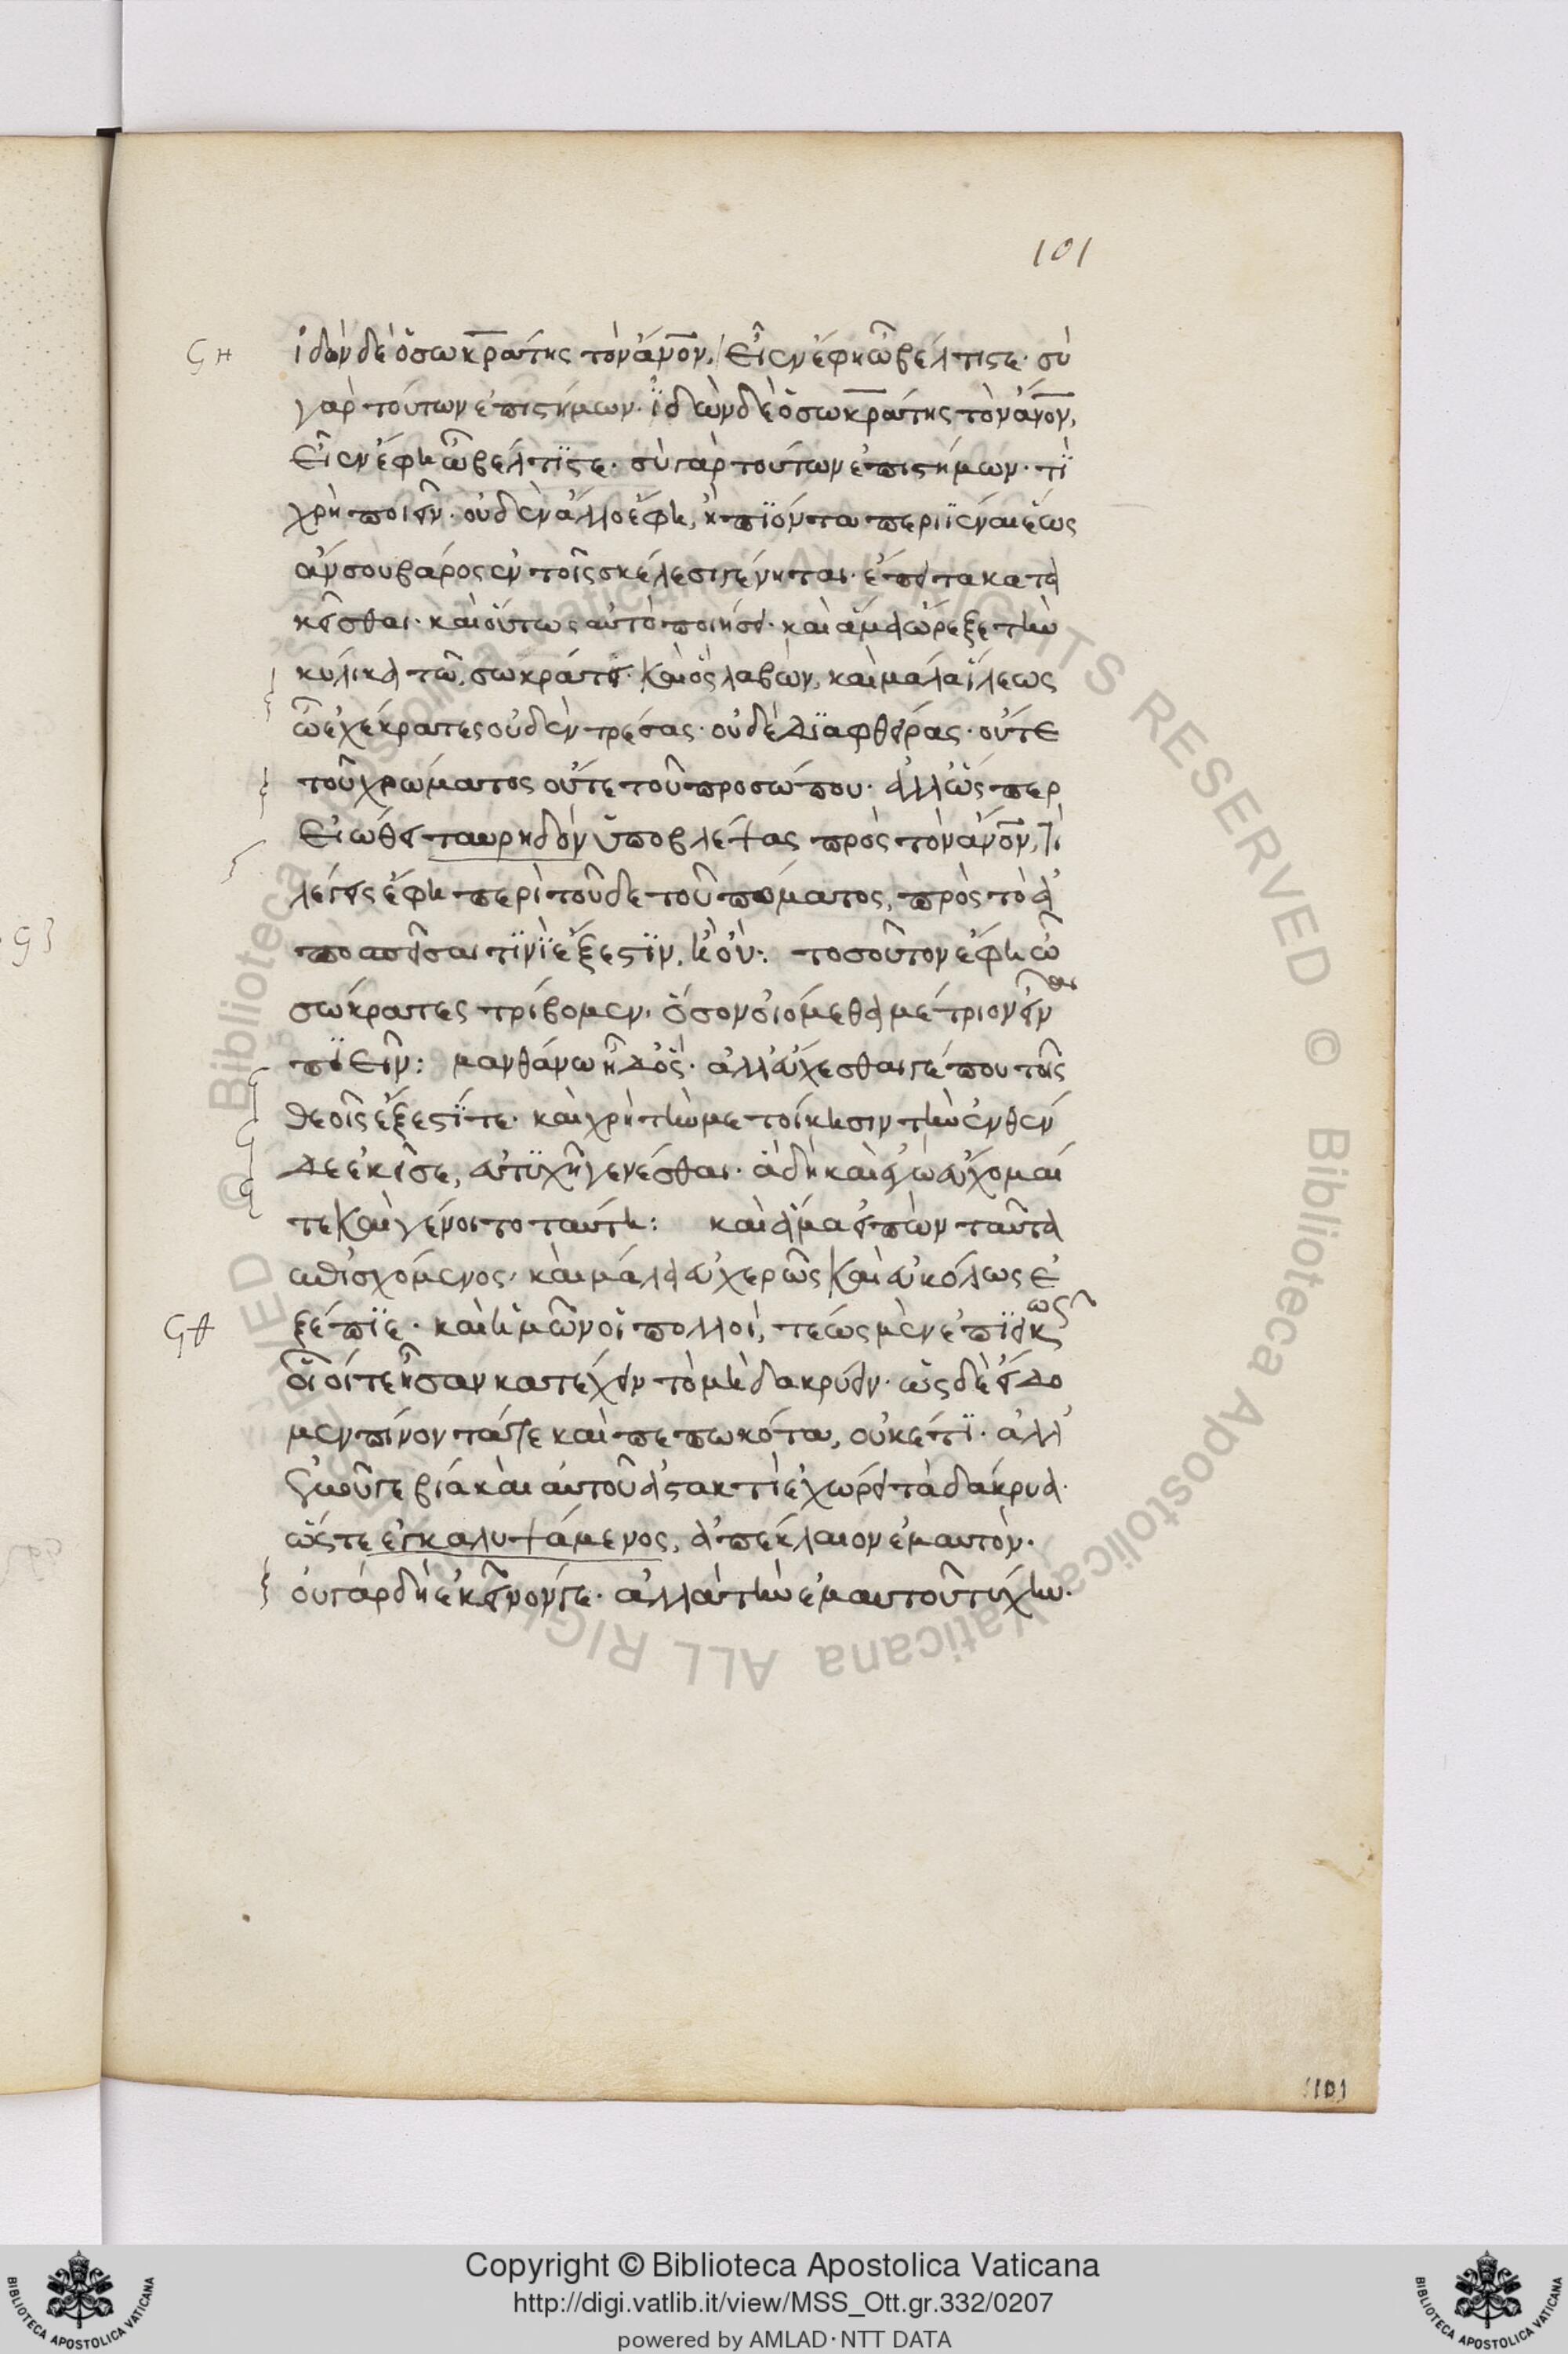 101
ϛη ἰδὼν δὲ ὁ σωκράτης τὸν ἄνον, εἶεν ἔφη ὦ βέλτιστε· σὺ
γὰρ τούτων ἐπιστήμων· ἰδὼν δὲ ὁ σωκράτης τὸν ἄνον,
εἶεν ἔφη ὦ βέλτιστε· σὺ γὰρ τούτων ἐπιστήμων· τί
χρὴ ποιεῖν· οὐδὲν ἄλλο ἔφη, ἢ πιόντα περιϊέναι ἕως
ἄν σου βάρος ἐν τοῖς σκέλεσι γένηται· ἔπειτα κατα
κεῖσθαι· καὶ οὕτως αὐτὸ ποιήσει· καὶ ἅμα ὤρεξε τὴν
κύλικα τῶ σωκράτει· καὶ ὃς λαβὼν, καὶ μάλα ἵλεως
ὦ ἐχέκρατες οὐδὲν τρέσας· οὐδὲ διαφθείρας· οὔτε
τοῦ χρώματος οὔτε τοῦ προσώπου· ἀλλ' ὥσπερ
εἰώθει ταυρηδὸν ὑποβλέψας πρὸς τὸν ἄνον, τί
λέγεις ἔφη περὶ τοῦδε τοῦ πώματος, πρὸς τὸ ἀ
ποσπεῖσαι τινὶ ἔξεστιν, ἢ οὔ: τοσοῦτον ἔφη ὦ
σώκρατες τρίβομεν, ὅσον οἰόμεθα μέτριον εἶν
αι
πιεῖν: μανθάνω ἦ δ' ὅς· ἀλλ' εὔχεσθαι γέ που τοῖς
θεοῖς ἔξεστί τε· καὶ χρὴ τὴν μετοίκησιν τὴν ἐνθέν
δε ἐκεῖσε, εὐτυχῆ γενέσθαι· ἃ δὴ καὶ ἐγὼ εὔχομαί
τε καὶ γένοιτο ταύτη: καὶ ἅμα εἰπὼν ταῦτα
ἐπισχόμενος, καὶ μάλα εὐχερῶς καὶ εὐκόλως ἐ
ϛθ ξέπιε· καὶ ἡμῶν οἱ πολλοὶ, τέως μὲν ἐπιεικ
ῶς
οἷοί τε ἦσαν κατέχειν τὸ μὴ δακρύειν· ὡς δὲ εἴδο
μεν πίνοντά τε καὶ πεπωκότα, οὐκέτι· ἀλλ'
ἐμοῦ γε βία καὶ αὐτοῦ ἀστακτὶ ἐχώρει τὰ δάκρυα·
ὥστε ἐγκαλυψάμενος, ἀπέκλαιον ἐμαυτόν·
οὐ γὰρ δὴ ἐκεῖνόν γε· ἀλλὰ τὴν ἐμαυτοῦ τύχην·
101
Copyright © Biblioteca Apostolica Vaticana
http://digi.vatlib.it/view/MSS_Ott.gr.332/0207
powered by AMLAD·NTT DATA
BIBLIOTECA APOSTOLICA VATICANA
BIBLIOTECA APOSTOLICA VATICANA
© Biblioteca Apostolica Vaticana ALL RIGHTS RESERVED © Biblioteca Apostolica Vaticana ALL RIGHTS RESERVED